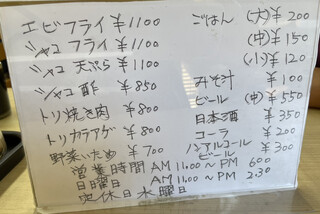 エビフライ ¥1100
シャコ フライ ¥1100
シャコ 天ぷら ¥1100
シャコ 酢 ¥850
トリ焼き肉 ¥800
トリカラアゲ ¥800
野菜いため ¥700
ごはん (大) ¥200
(中) ¥150
(小) ¥120
みそ汁 ¥100
ビール (中) ¥550
日本酒 ¥350
コーラ ¥200
ノンアルコール
ビール ¥300
営業時間 AM 11.00～PM 6.00
日曜日 AM 11.00～PM 2.30
定休日 水曜日